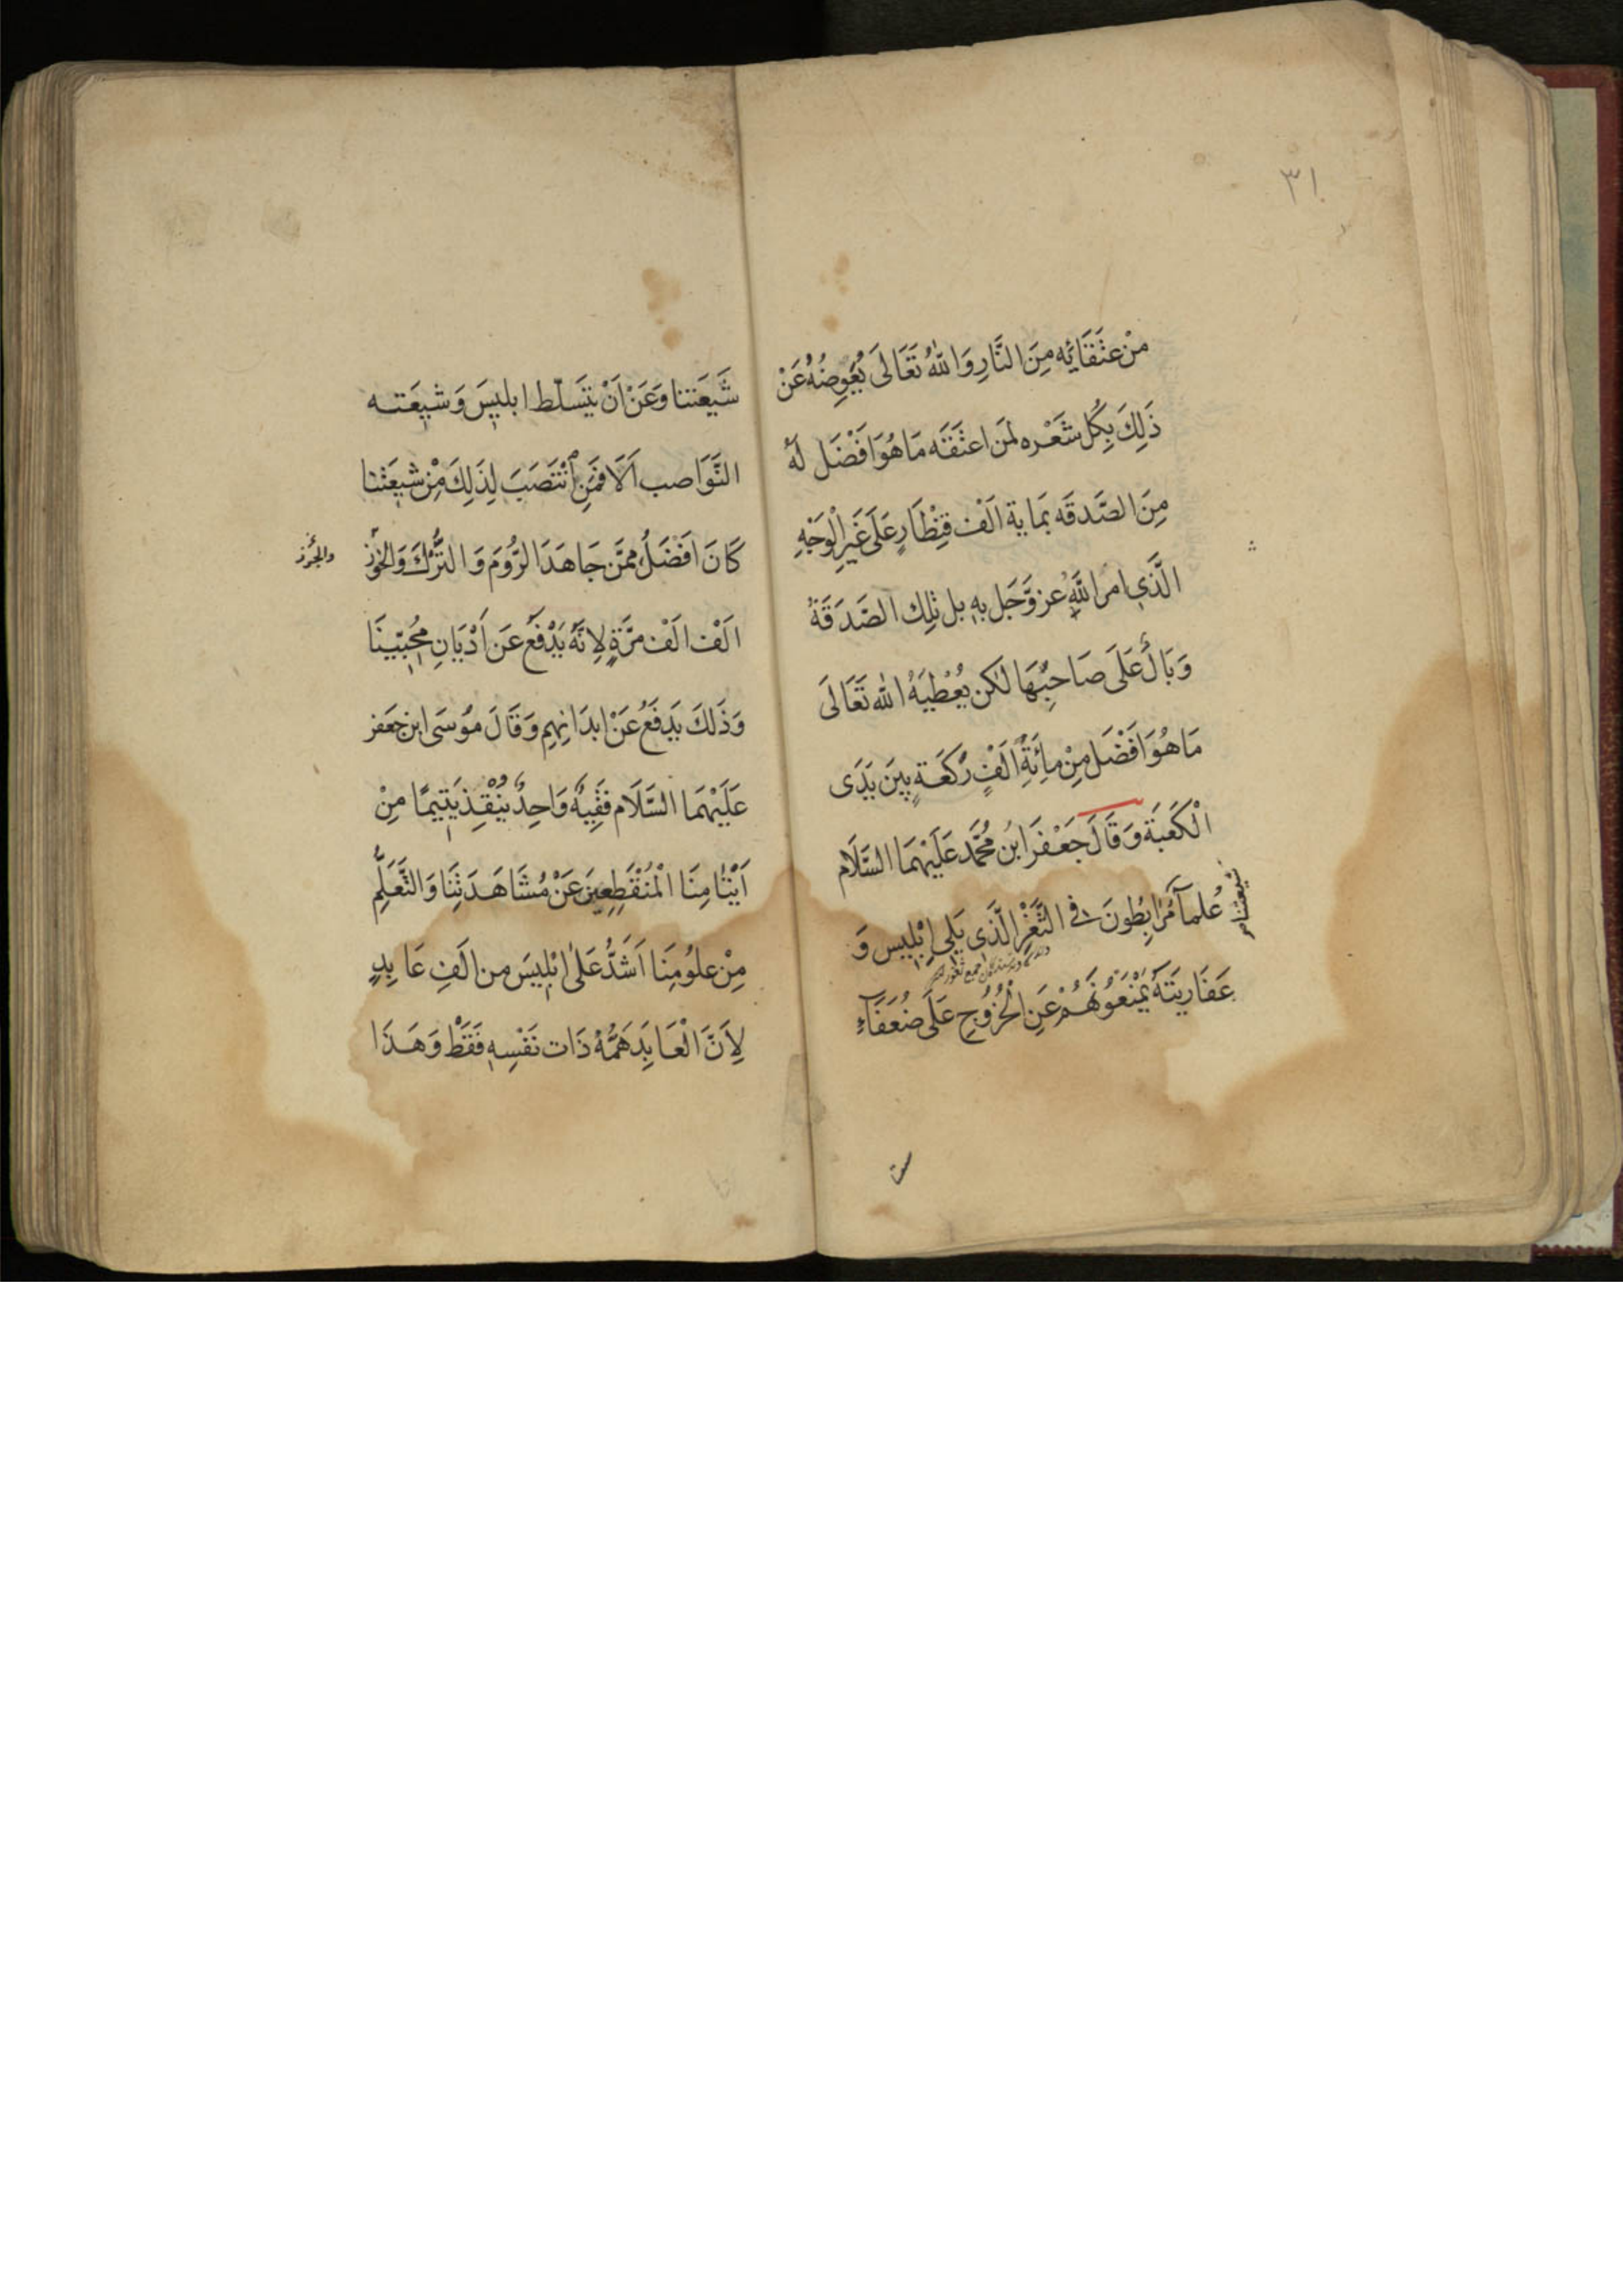 ٣١
مِنْ عتَقَائِه مِنَ النَّارِ وَاللّٰهُ تَعَالَى يُعَوِضُهُ عَنْ
ذَلِكَ بِكُلِ شَعْره لمَن اعتَقَه مَا هُوَ افَضَل لَهُ
مِنَ الصَّدقَه بمَاية الَف قِنْطَارٍ عَلَى غَيرِ الْوَجْهِ
الَّذِي امر اللَّهُ عز وَّجَل بِهِ بل تلِك الصَّدَقَةُ
وَبَالٌ عَلَى صَاحِبُهَا لٰكن يُعْطِيهُ الله تَعَالَى
مَا هُوَ افَضَل مِنْ مِائَةِ الَفِ رَكَعَةٍ بِينَ يَدَى
الْكَعَبَة وَقَالَ جَعْفَرَ ابنُ مُحَّمد عَلَيْهمَا السَّلَام
شيعتنا م
عُلمآ مُرَابِطُونَ فى الثَّغْرِ الَّذِى يَلِى اِبْلِيس وَ
عَفَارِيتَهُ يَمْنَعُونَهُمْ عَنِ الْخُرُوُجِ عَلَى ضُعَفَآءِ
شَيعَتنا وَعَنْ اَنْ يتَسَلّط ابليِسَ وَشيِعَتـه
النَّوَاصب اَلَا فمَنِ انْتَصَبَ لِذَلِكَ مِنْ شيِعَتنا
كَانَ افَضَلُ ممَّن جَاهَدَ الرُّوُمَ وَ التُّرْكَ وَالخَوُز
والجُرز
الَف الَف مرَّةٍ لِانَّهُ يَدْفَعُ عَن اَدْيَانِ مُحِبّيِنَا
وَذَلكَ يَدفَعُ عَنْ ابدَانِهِم وَقَالَ مُوسَى ابن جعَفر
عَلَيْهمَا السَّلَام فَقِيهٌ وَاحِدٌ يُنْقِذ يَتِيمًا مِنْ
اَيْتَامِنَا الْمُنْقَطِعِينَ عَنْ مُشَاهَدَتِنَا وَالتَّعَلُّمِ
مِنْ علوُمِنَا اَشَدُّ عَلىٰ ابْلِيسَ من الَفِ عَابِدٍ
لِاَنَّ الْعَابِدَ هَمُّهُ ذَات نَفْسِهِ فَقَطْ وَهَذَا